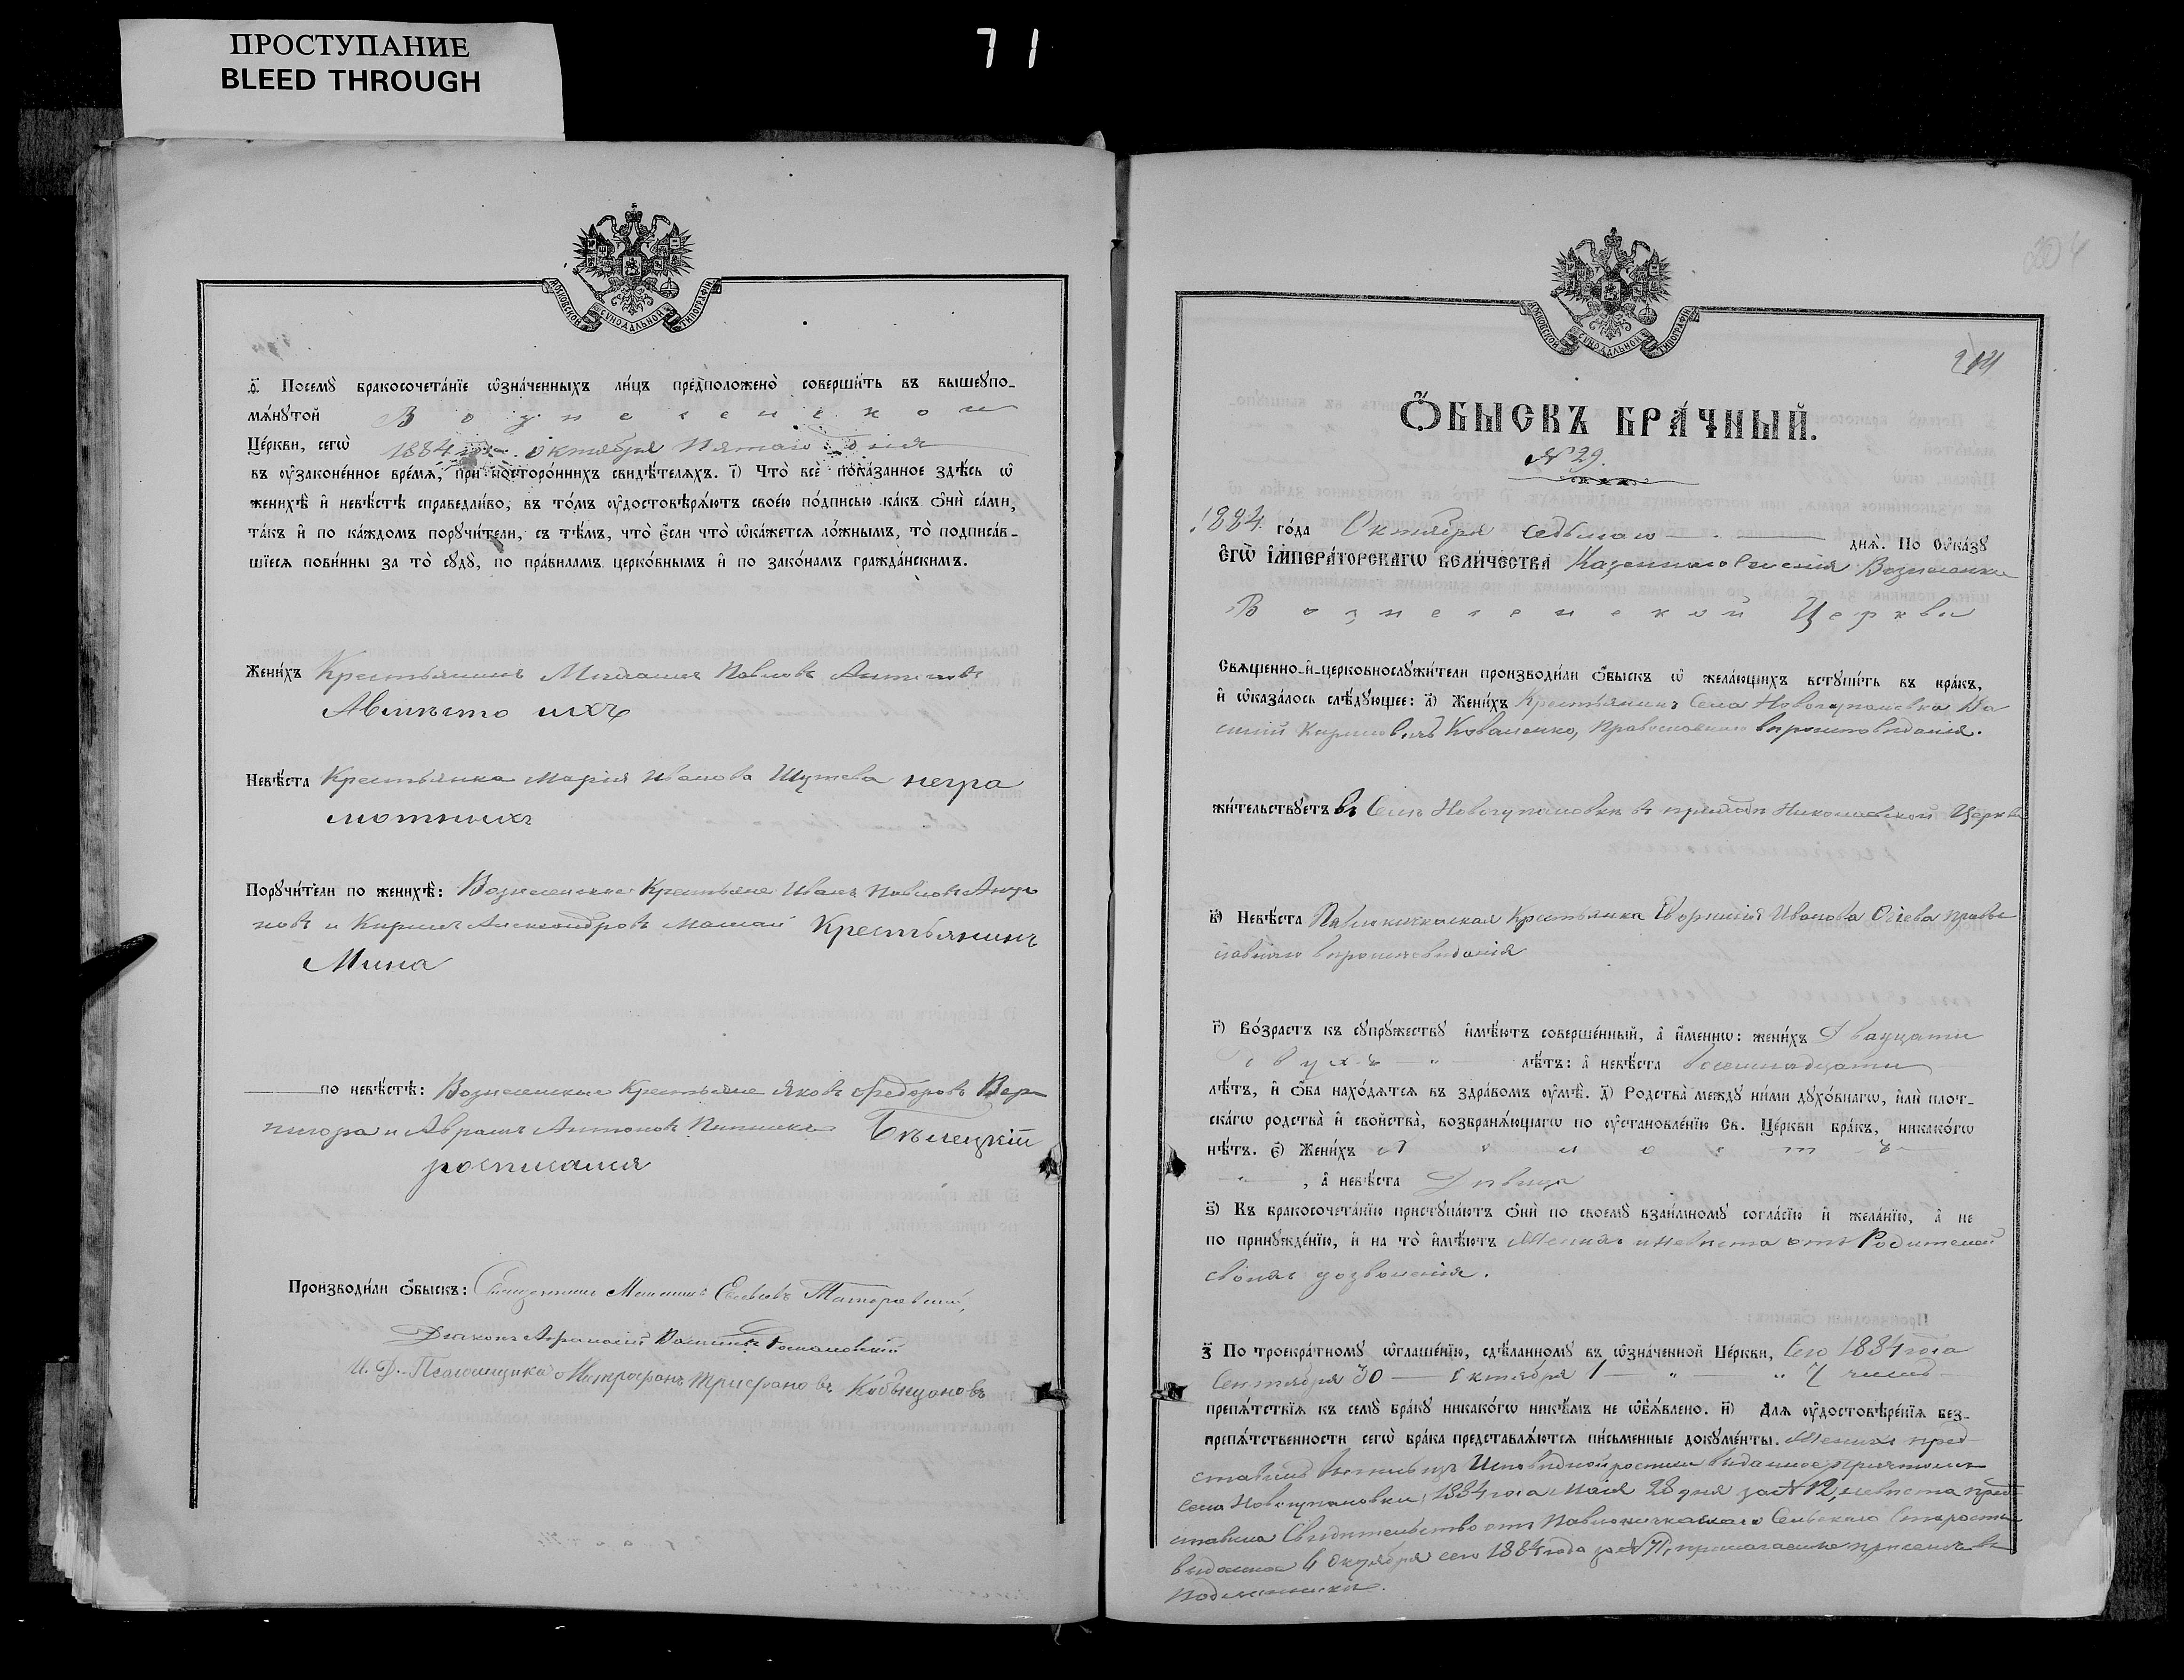 ПРОСТУПАНИЕ
BLEED THROUGH
71
МОСКОВСКОЙ СѴНОДАЛЬНОЙ ТИПОГРАФІИ
Посемꙋ̀ бракосочета́нїе ѡ҆зна́ченныхъ ли́цъ предположено̀ соверши́ть въ вышеꙋпо-
мѧ́нꙋтой Вознесенской
Це́ркви, сегѡ̀ 1884 года Октября пятаго дня
въ ᲂу҆зако́ненное вре́мѧ, при посторо́ннихъ свидѣ́телѧхъ. і҃) Что̀ всѐ пока́занное здѣ́сь ѡ҆
женихѣ̀ и҆ невѣ́стѣ справедли́во, въ то́мъ ᲂу҆достовѣрѧ́ютъ свое́ю по́дписью ка́къ ѻ҆нѝ са́ми,
та́къ и҆ по ка́ждомъ порꙋчи́тели, съ тѣ́мъ, что̀ є҆́сли что̀ ѡ҆ка́жетсѧ ло́жнымъ, то̀ подписа́в-
шїесѧ пови́нны за то̀ сꙋдꙋ̀, по пра́виламъ церко́внымъ и҆ по зако́намъ гражда́нскимъ.
Жени́хъ Крестьянинъ Павловъ
Авмѣсто ихъ
Невѣ́ста Крестьянка Марія Иванова негра
мотныхъ
Порꙋчи́тели по женихѣ̀: Вознесенские Крестьяне Иванъ Павловъ
новъ и Кирилъ Александровъ Крестьянинъ
Мина
по невѣ́стѣ: Вознесенские Крестьяне Яковъ Федоровъ Вер
нигора и Аврамъ Антоновъ Бѣлецкій
росписался
Производи́ли ѻ҆́быскъ: Священникъ
Діаконъ Афанасій
И. Д. Псаломщика Митрофанъ Трифановъ
204
Ѻ҆́БЫСКЪ БРА́ЧНЫЙ.
№ 29.
1884 го́да Октября седьмаго днѧ̀. По ᲂу҆ка́зꙋ
Є҆гѡ̀ И҆мпера́торскагѡ Вели́чества Казеннаго селенія Вознесенки
Вознесенской Церкви
Свѧщенно-и҆-церковнослꙋжи́тели производи́ли ѻ҆́быскъ ѡ҆ жела́ющихъ встꙋпи́ть въ бра́къ,
и҆ ѡ҆каза́лось слѣ́дꙋющее: а҃) Жени́хъ Крестьянинъ Села Новогупаловка Ва
силий Кириловичъ Коваленко, православнаго вѣроисповѣданія.
жи́тельствꙋетъ въ Селѣ Новогупаловкѣ въ приходѣ Николаевской Церкви
в҃) Невѣ́ста Павлокичкаская Крестьянка Иванова правос
лавнаго вѣроисповѣданія
г҃) Во́зрастъ къ сꙋпрꙋ́жествꙋ и҆мѣ́ютъ соверше́нный, а҆ и҆́меннѡ: жени́хъ Двадцати
двухъ лѣ́тъ: а҆ невѣ́ста восемнадцати
лѣ́тъ, и҆ ѻ҆́ба нахо́дѧтсѧ въ здра́вомъ ᲂу҆мѣ̀. д҃) Родства̀ междꙋ̀ ни́ми дꙋхо́внагѡ, и҆лѝ плот-
ска́гѡ родства̀ и҆ сво́йства̀, возбранѧ́ющагѡ по ᲂу҆становле́нїю Св. Це́ркви бра́къ, никако́гѡ
нѣ́тъ. є҃) Жени́хъ холостъ
, а҆ невѣ́ста Дѣвица
ѕ҃) Къ бракосочета́нїю пристꙋпа́ютъ ѻ҆нѝ по своемꙋ̀ взаи́мномꙋ согла́сїю и҆ жела́нїю, а҆ не
по принꙋжде́нїю, и҆ на то̀ и҆мѣ́ютъ Женихъ и невѣста отъ Родителей
своихъ дозволенія.
з҃ По троекра́тномꙋ ѡ҆глаше́нїю, сдѣ́ланномꙋ въ ѡ҆зна́ченной Це́ркви, Сего 1884 года
Сентября 30 Октября 1 7 чиселъ
препѧ́тствїѧ къ семꙋ̀ бра́кꙋ никако́гѡ никѣ́мъ не ѡ҆б̾ѧ́влено. и҃) Длѧ ᲂу҆достовѣре́нїѧ без-
препѧ́тственности сегѡ̀ бра́ка представлѧ́ютсѧ пи́сьменные докꙋме́нты. Женихъ пред
ставилъ выпись изъ Исповѣдной росписи выданное причтомъ
села Новогупаловки 1884 года Мая 28 дня за № 12, невѣста пред
ставила Свидѣтельство отъ Павлокичкаскаго Сельскаго Старосты
выданное 4 Октября сего 1884 года за № 71, прилагаемые при семъ въ
подлинникѣ.